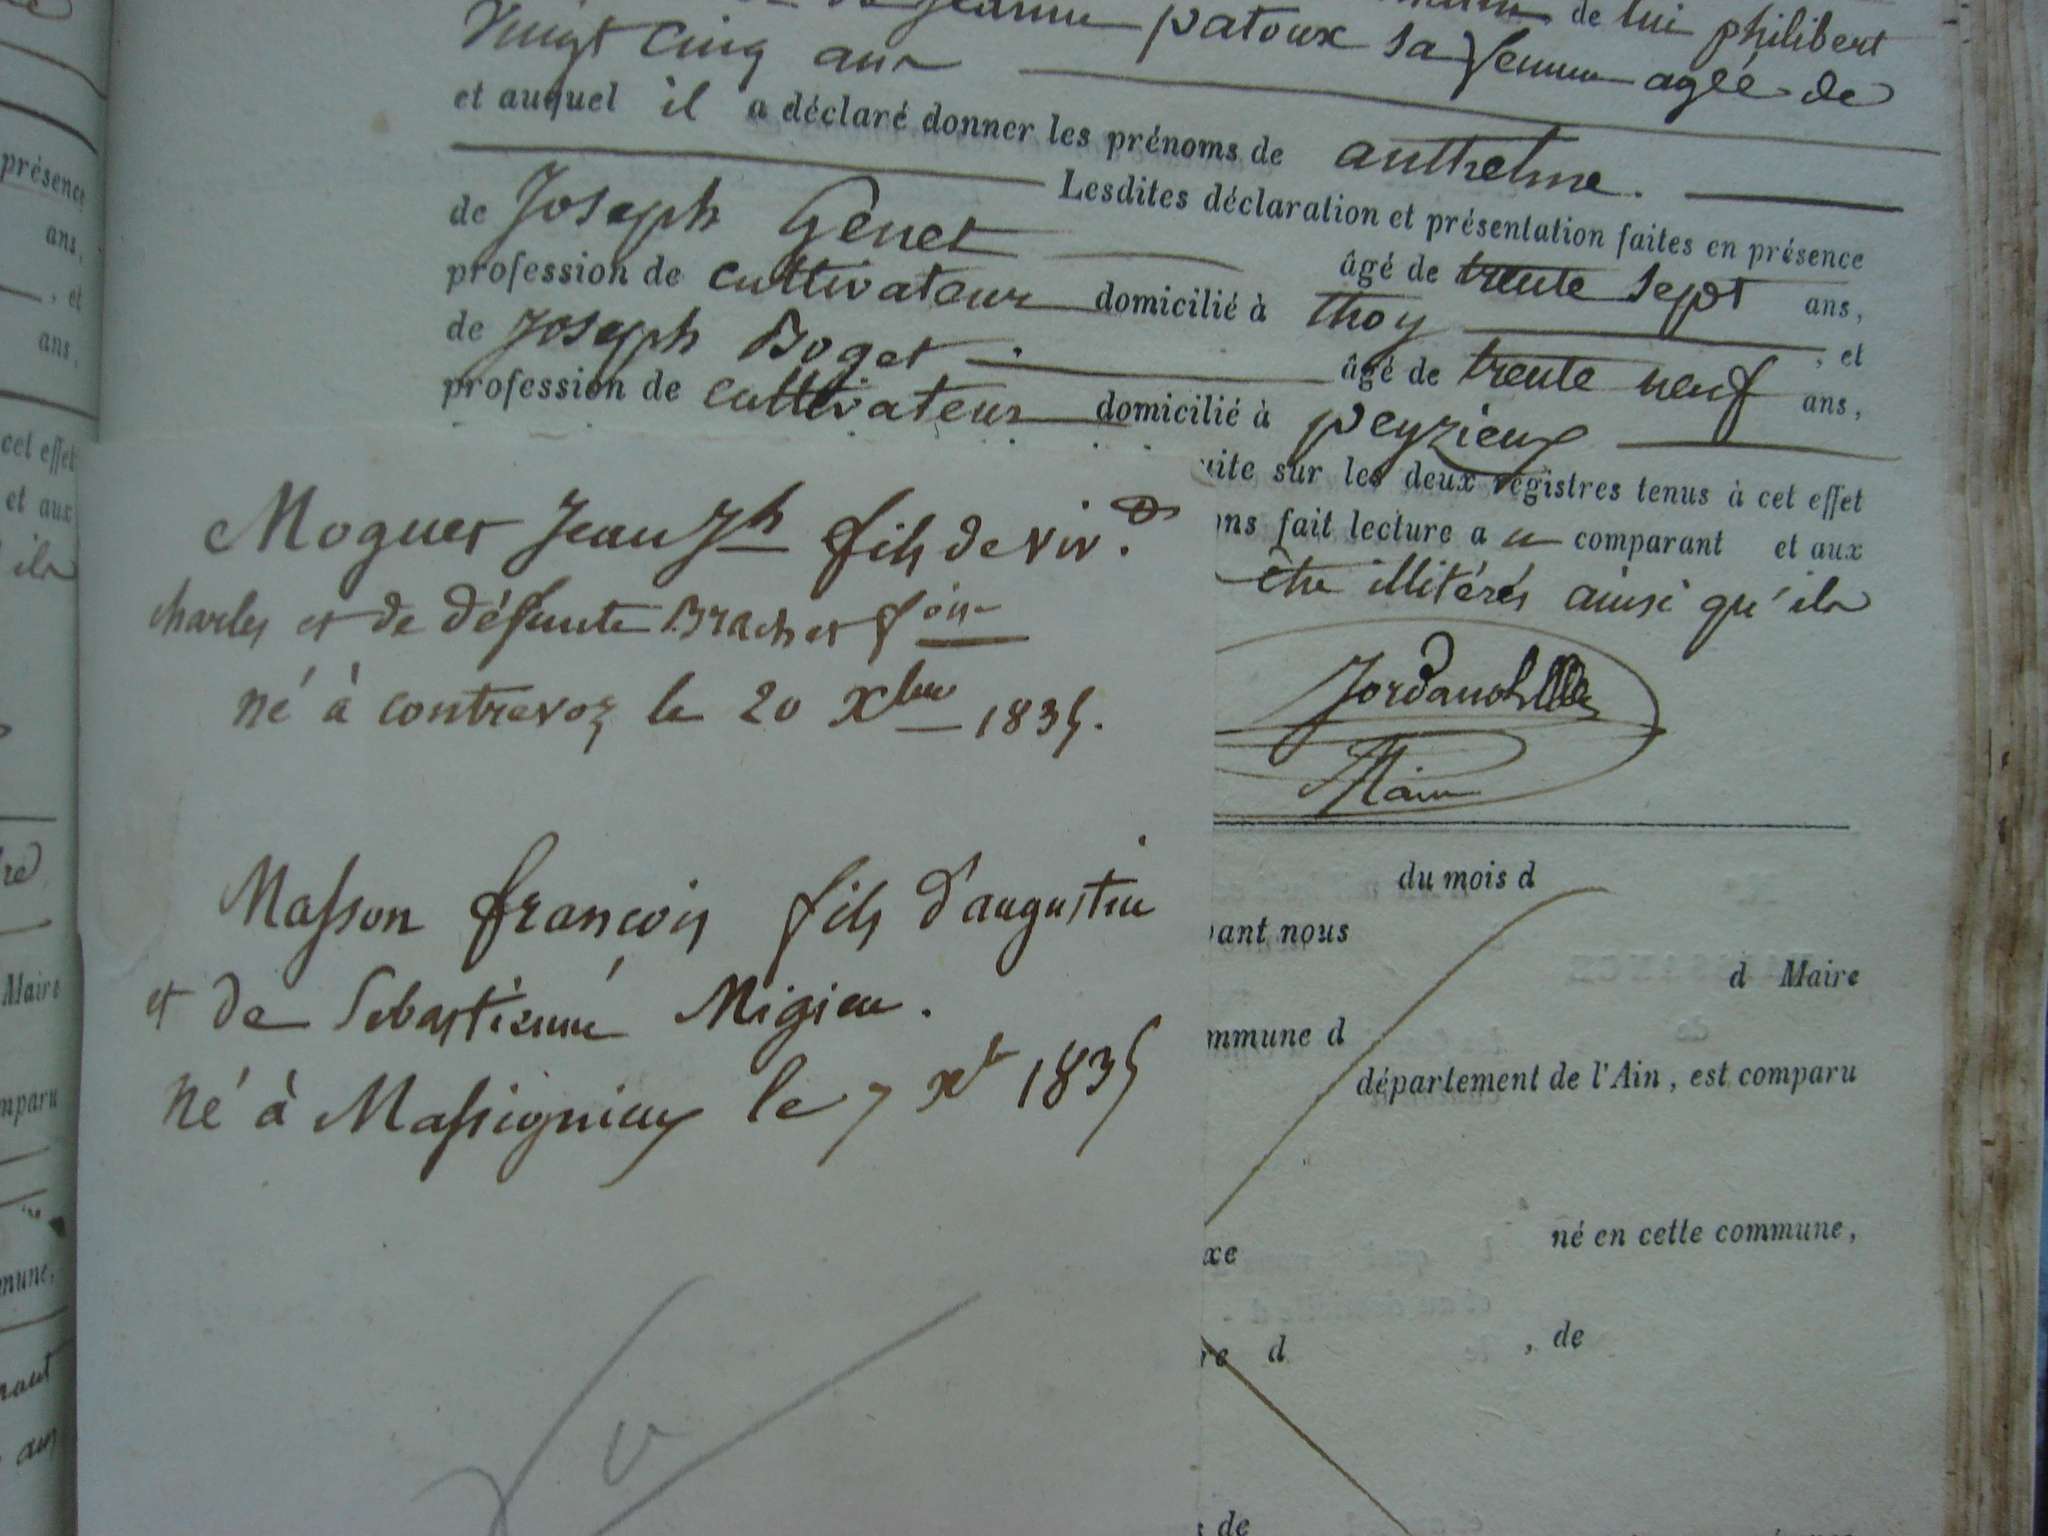 de lui philibert
jeanne patoux sa femme agée de
Vingt Cinq ans
et auquel il a déclaré donner les prénoms de anthelme.
Lesdites déclaration et présentation faites en présence
de Joseph Genet âgé de trente sept ans,
profession de cultivateur domicilié à thoy , et
de Joseph Boget âgé de trente neuf ans,
profession de cultivateur domicilié à peyzieux
uite sur les deux registres tenus à cet effet
ons fait lecture a ce comparant et aux
être illitérés ainsi qu'ils
Maire
Moguet Jean Jh fils de viv.
Charles et de défunte Brachet foise
né à contrevoz le 20 Xbre 1835.
Masson françois fils d'augustin
et de Sebastienne Migieu.
né à Massignieu le 7 Xb 1835
du mois d
vant nous
d Maire
mmune d
département de l'Ain, est comparu
né en cette commune,
xe
re d , de
de
présence
ans,
, et
ans,
cet effet
et aux
ils
Maire
mparu
mune,